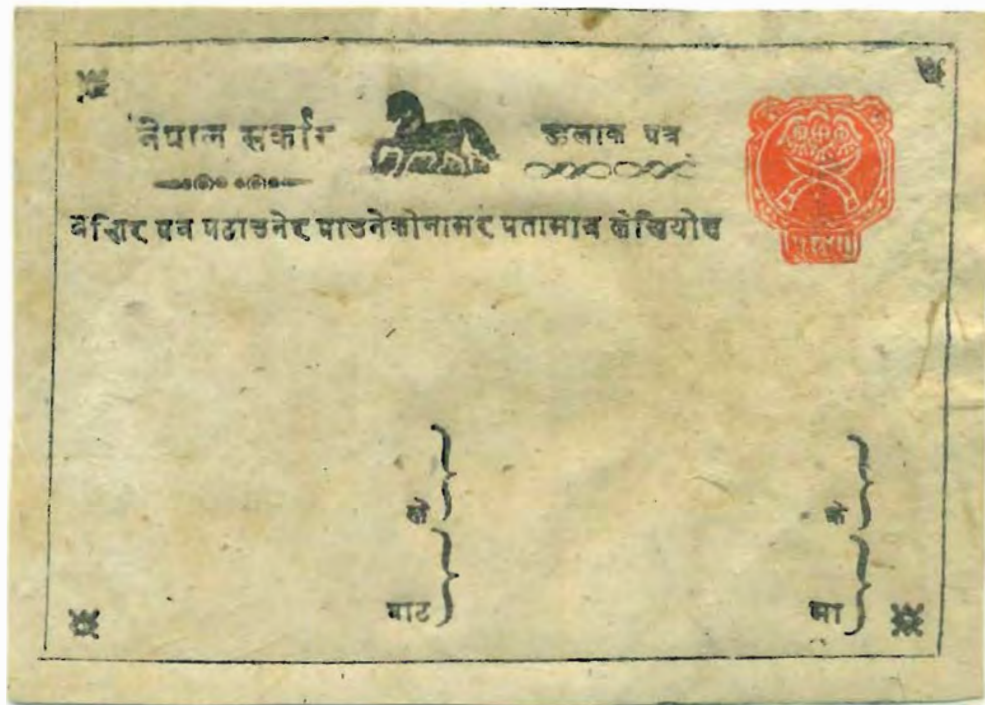 नेपाल सर्कार
हुलाक पत्र
पत्र पठाउनेर पाउनेकोनामर पतामात्र लेखियोस
को
के
बाट
मा